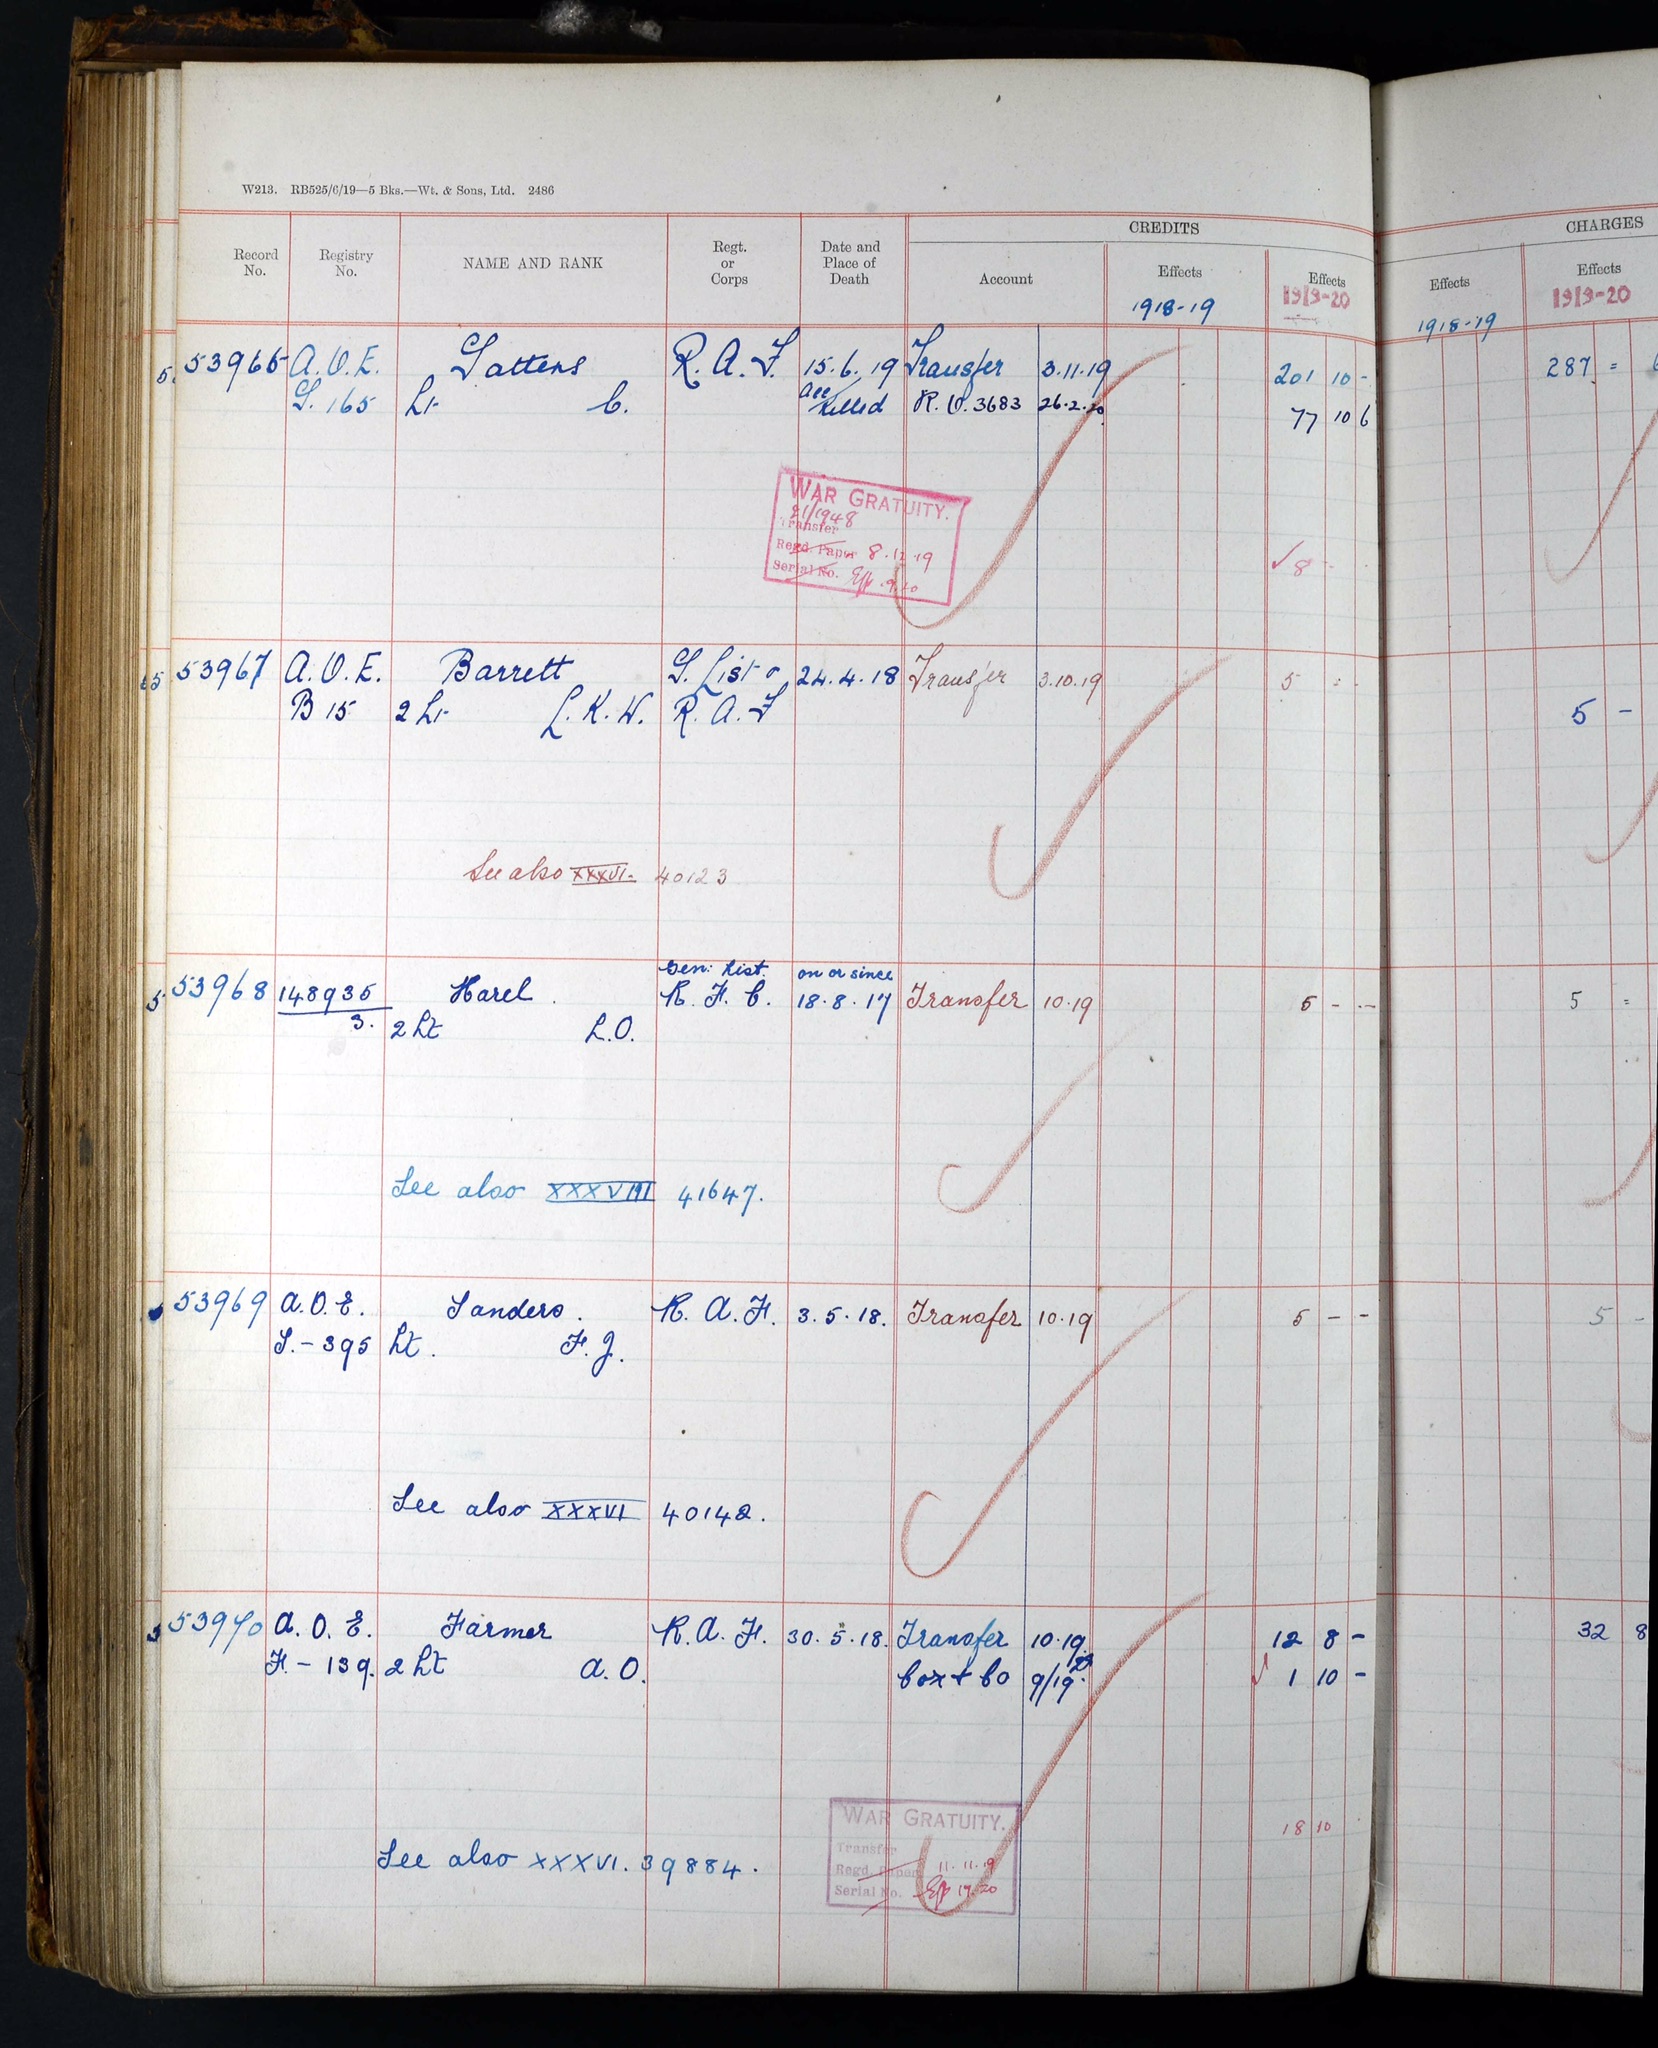 W213. RB525/6/19—5 Bks.—Wt. & Sons, Ltd. 2486
Record No. Registry No. NAME AND RANK Regt. or Corps Date and Place of Death CREDITS Account Effects 1918-19 Effects 1919-20 CHARGES Effects 1918-19 Effects 1919-20
53965 A.O.E. Gattens R.A.F. 15.6.19 Transfer 3.11.19 201 10 - 287 =
G. 165 Lt C. acc/ Killed R.O. 3683 26.2.20 77 10 6
WAR GRATUITY.
21/1948
Transfer
Regd. Paper 8.12.19
Serial No. Eff. 9.20
✓ 8 - -
53967 A.O.E. Barrett G. List & 24.4.18 Transfer 3.10.19 5 = -
B 15 2 Lt L.K.W. R.A.F 5 -
See also XXXVI. 40123
Gen: List. on or since
53968 148935 Harel. R.F.C. 18.8.17 Transfer 10.19 5 - - 5 =
3. 2 Lt L.O.
See also XXXVIII 41647.
53969 A.O.E. Sanders. R.A.F. 3.5.18. Transfer 10.19 5 - - 5 -
S.-395 Lt. F.J.
See also XXXVI 40142.
53970 A.O.E. Farmer R.A.F. 30.5.18. Transfer 10.19. 12 8 - 32 8
F.-139. 2 Lt A.O. Cox & Co 9/19. ✓ 1 10 -
WAR GRATUITY.
Transfer
Regd. Paper 11.11.19
Serial No. Eff 19.20
18 10
See also XXXVI. 39884.